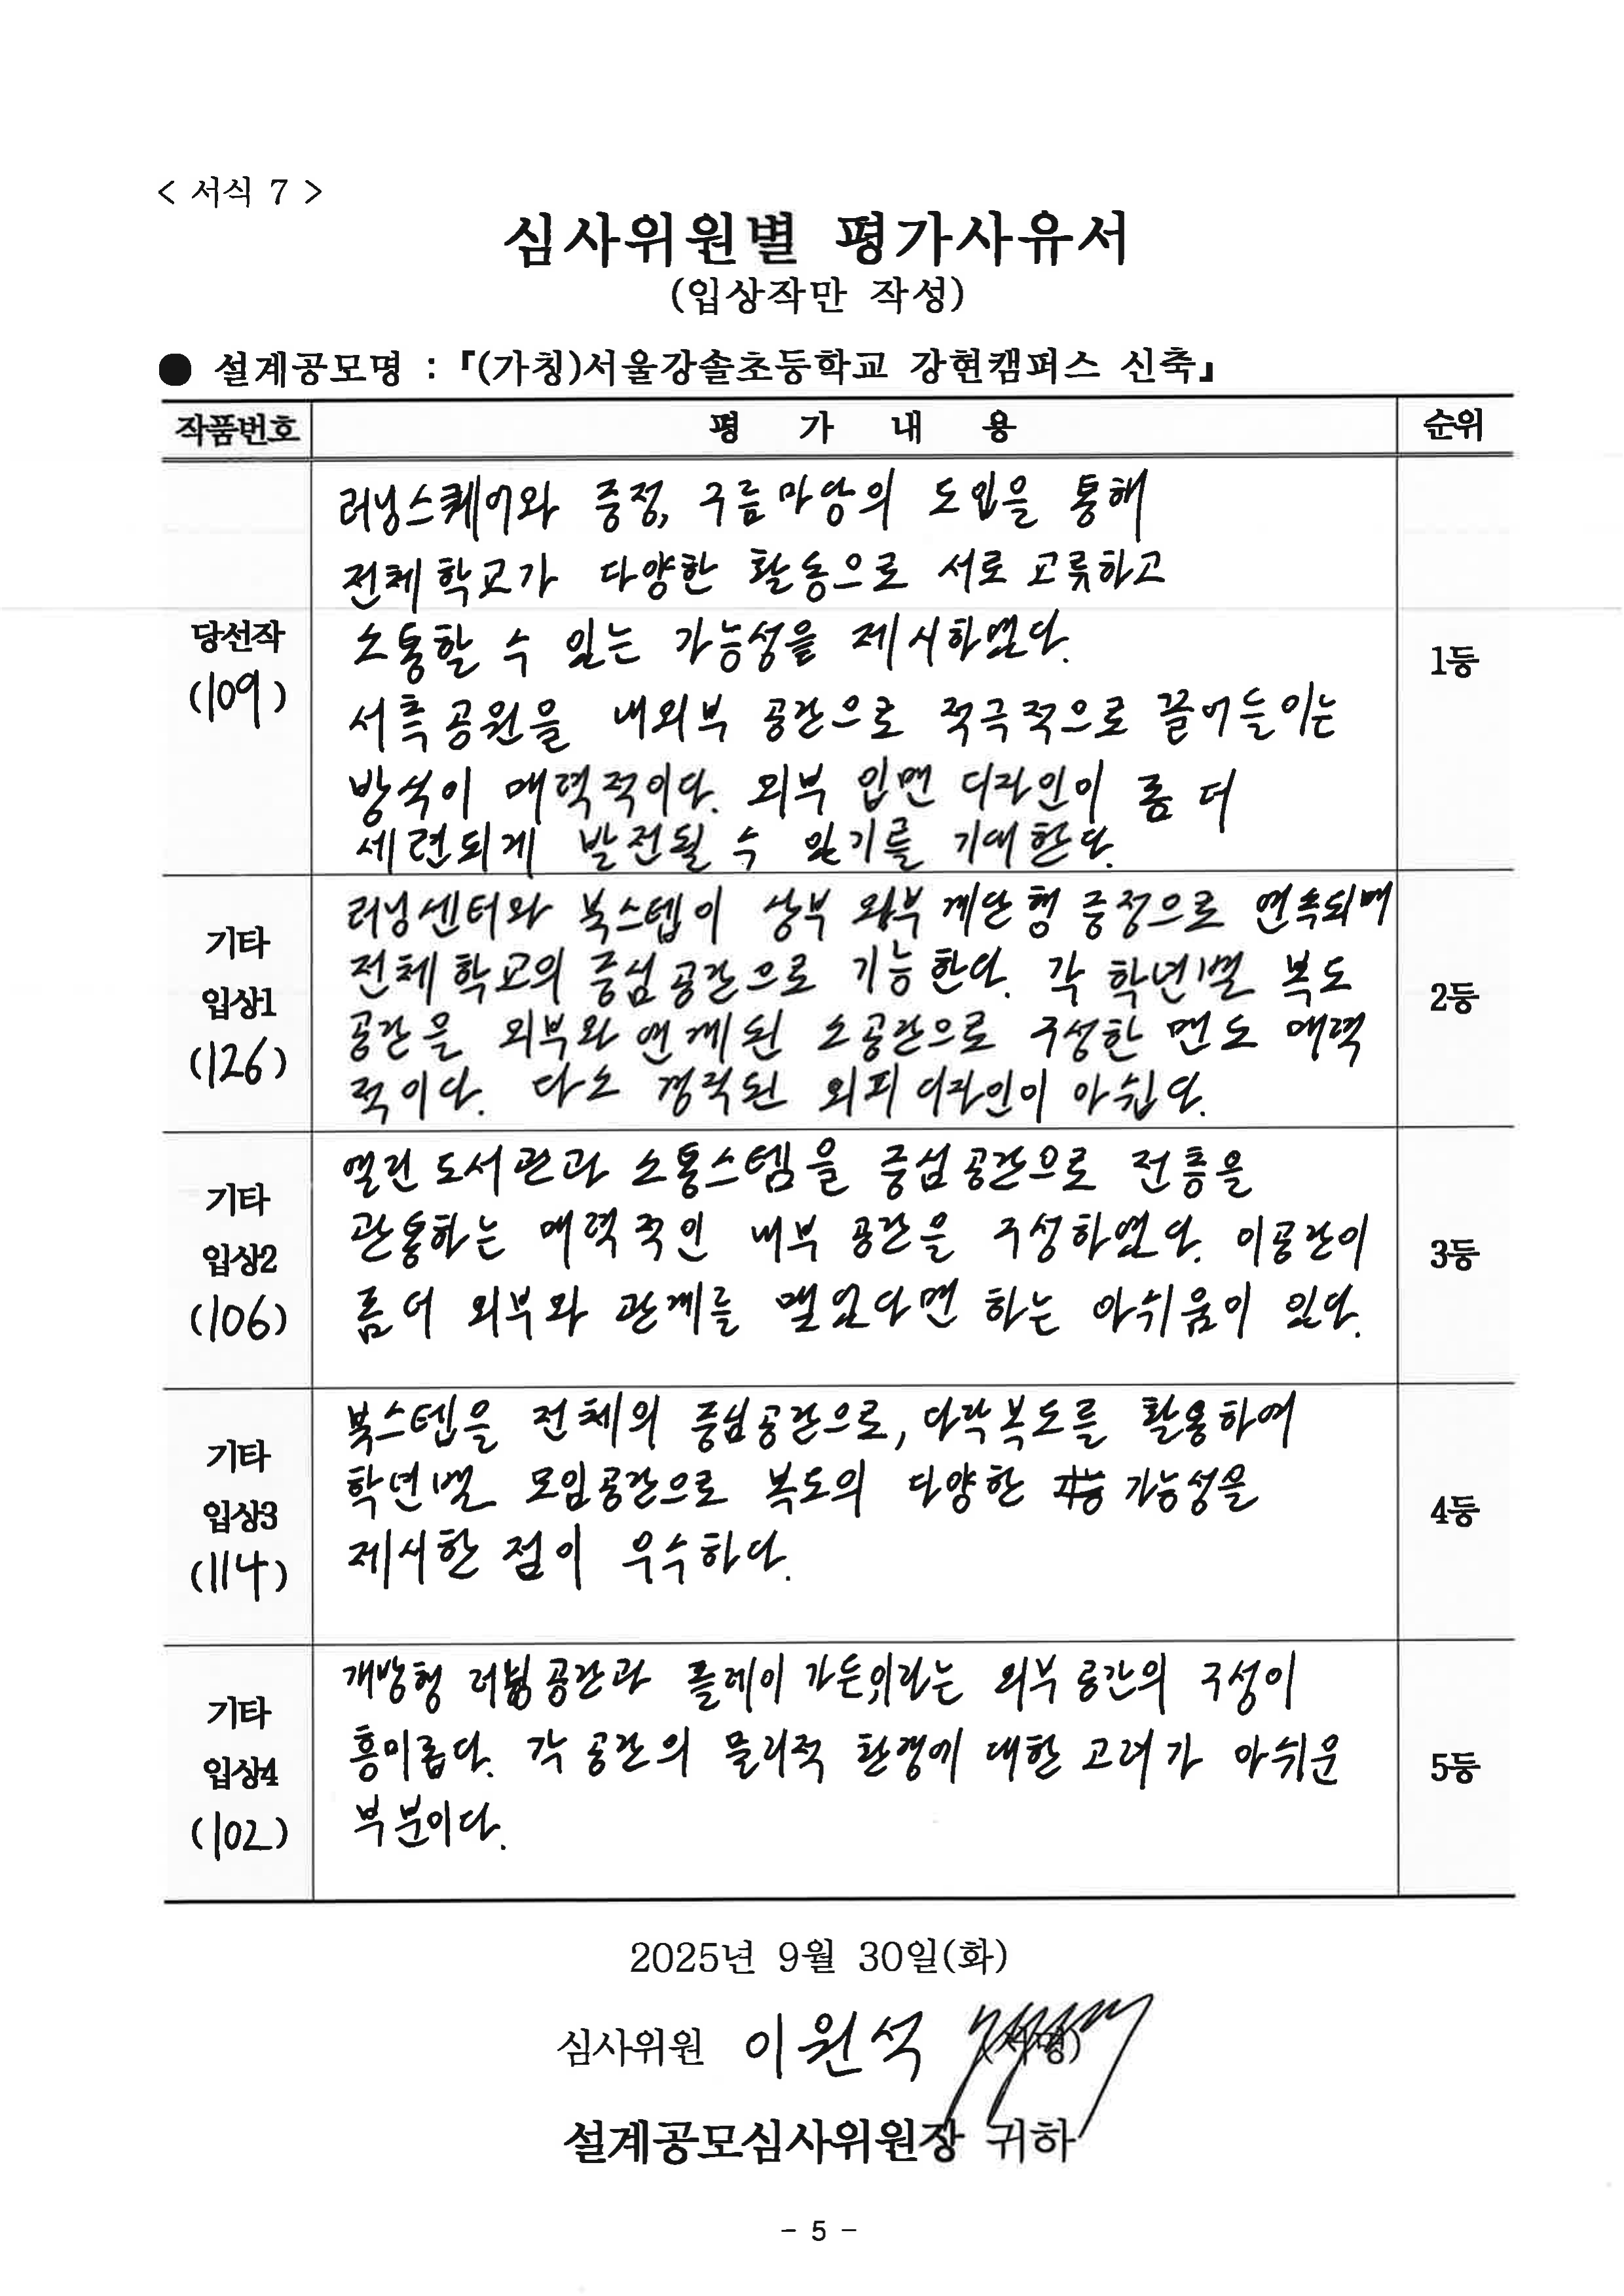 < 서식 7 >
심사위원별 평가사유서
(입상작만 작성)
● 설계공모명 : 『(가칭)서울강솔초등학교 강현캠퍼스 신축』
작품번호 평 가 내 용 순위
당선작
(109)
러닝스퀘어와 중정, 구름마당의 도입을 통해
전체학교가 다양한 활동으로 서로 교류하고
소통할 수 있는 가능성을 제시하였다.
서측공원을 내외부 공간으로 적극적으로 끌어들이는
방식이 매력적이다. 외부 입면 디자인이 좀 더
세련되게 발전될 수 있기를 기대한다.
1등
기타
입상1
(126)
러닝센터와 북스텝이 상부 외부 계단형 중정으로 연속되며
전체학교의 중심공간으로 기능한다. 각 학년별 복도
공간을 외부와 연계된 소공간으로 구성한 면도 매력
적이다. 다소 경직된 외피 디자인이 아쉽다.
2등
기타
입상2
(106)
열린도서관과 소통스텝을 중심공간으로 전층을
관통하는 매력적인 내부 공간을 구성하였다. 이공간이
좀 더 외부와 관계를 맺었다면 하는 아쉬움이 있다.
3등
기타
입상3
(114)
북스텝을 전체의 중심공간으로, 다락복도를 활용하여
학년별 모임공간으로 복도의 다양한 가능성을
제시한 점이 우수하다.
4등
기타
입상4
(102)
개방형 러닝공간과 플레이가든이라는 외부공간의 구성이
흥미롭다. 각 공간의 물리적 환경에 대한 고려가 아쉬운
부분이다.
5등
2025년 9월 30일(화)
심사위원 이원석 (서명)
설계공모심사위원장 귀하
- 5 -